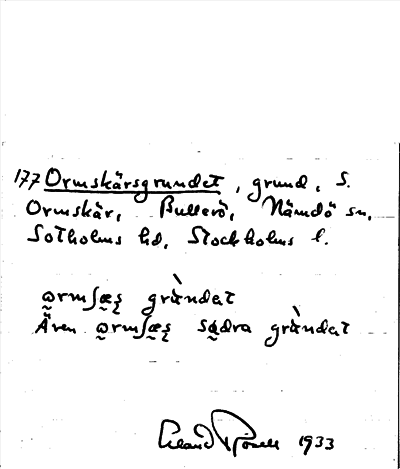 177 Ormskärsgrundet, grund, S.
Ormskär, Bullerö, Nämdö sn,
Sotholms hd, Stockholms l.
ω̰rmʃæ̰ʂ grὰndət
Även ω̰rmʃæ̰ʂ sədra grὰndət
1933